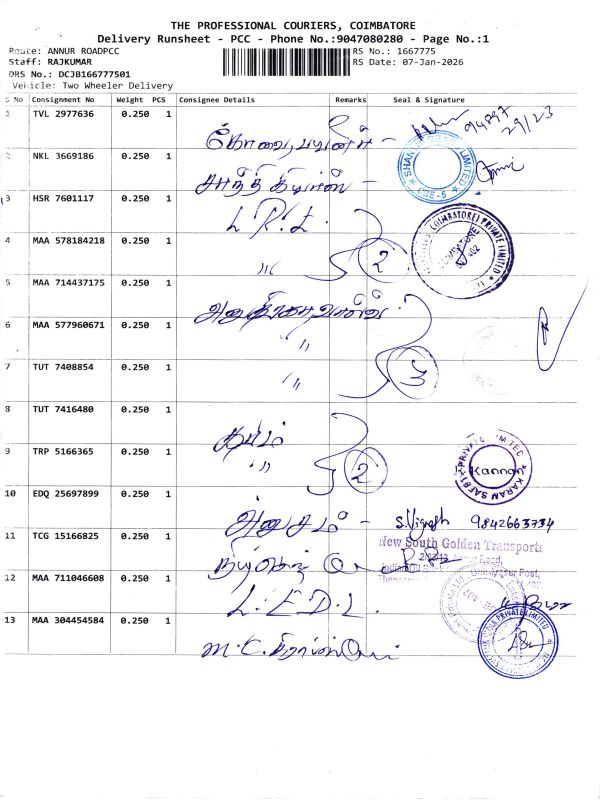 THE PROFESSIONAL COURIERS, COIMBATORE
Delivery Runsheet - PCC - Phone No.:9047080280 - Page No.:1
Route: ANNUR ROADPCC
RS No.: 1667775
Staff: RAJKUMAR
RS Date: 07-Jan-2026
DRS No.: DCJB166777501
Vehicle: Two Wheeler Delivery
S No Consignment No Weight PCS Consignee Details Remarks Seal & Signature
1 TVL 2977636 0.250 1
கோவை
2 NKL 3669186 0.250 1
SHAN LIMITED CBE-5
3 HSR 7601117 0.250 1
L.R.I.
4 MAA 578184218 0.250 1
〃 2
(COIMBATORE) PRIVATE LIMITED
5 MAA 714437175 0.250 1
6 MAA 577960671 0.250 1
〃
7 TUT 7408854 0.250 1
〃 3
8 TUT 7416480 0.250 1
9 TRP 5166365 0.250 1
〃 2
KARAM SAFETY PRIVATE LIMITED Kannan
10 EDQ 25697899 0.250 1
S.Vignesh 9842663734
11 TCG 15166825 0.250 1
New South Golden Transports
12 MAA 711046608 0.250 1
L.E.D.L.
13 MAA 304454584 0.250 1
M.C.
PRIVATE LIMITED